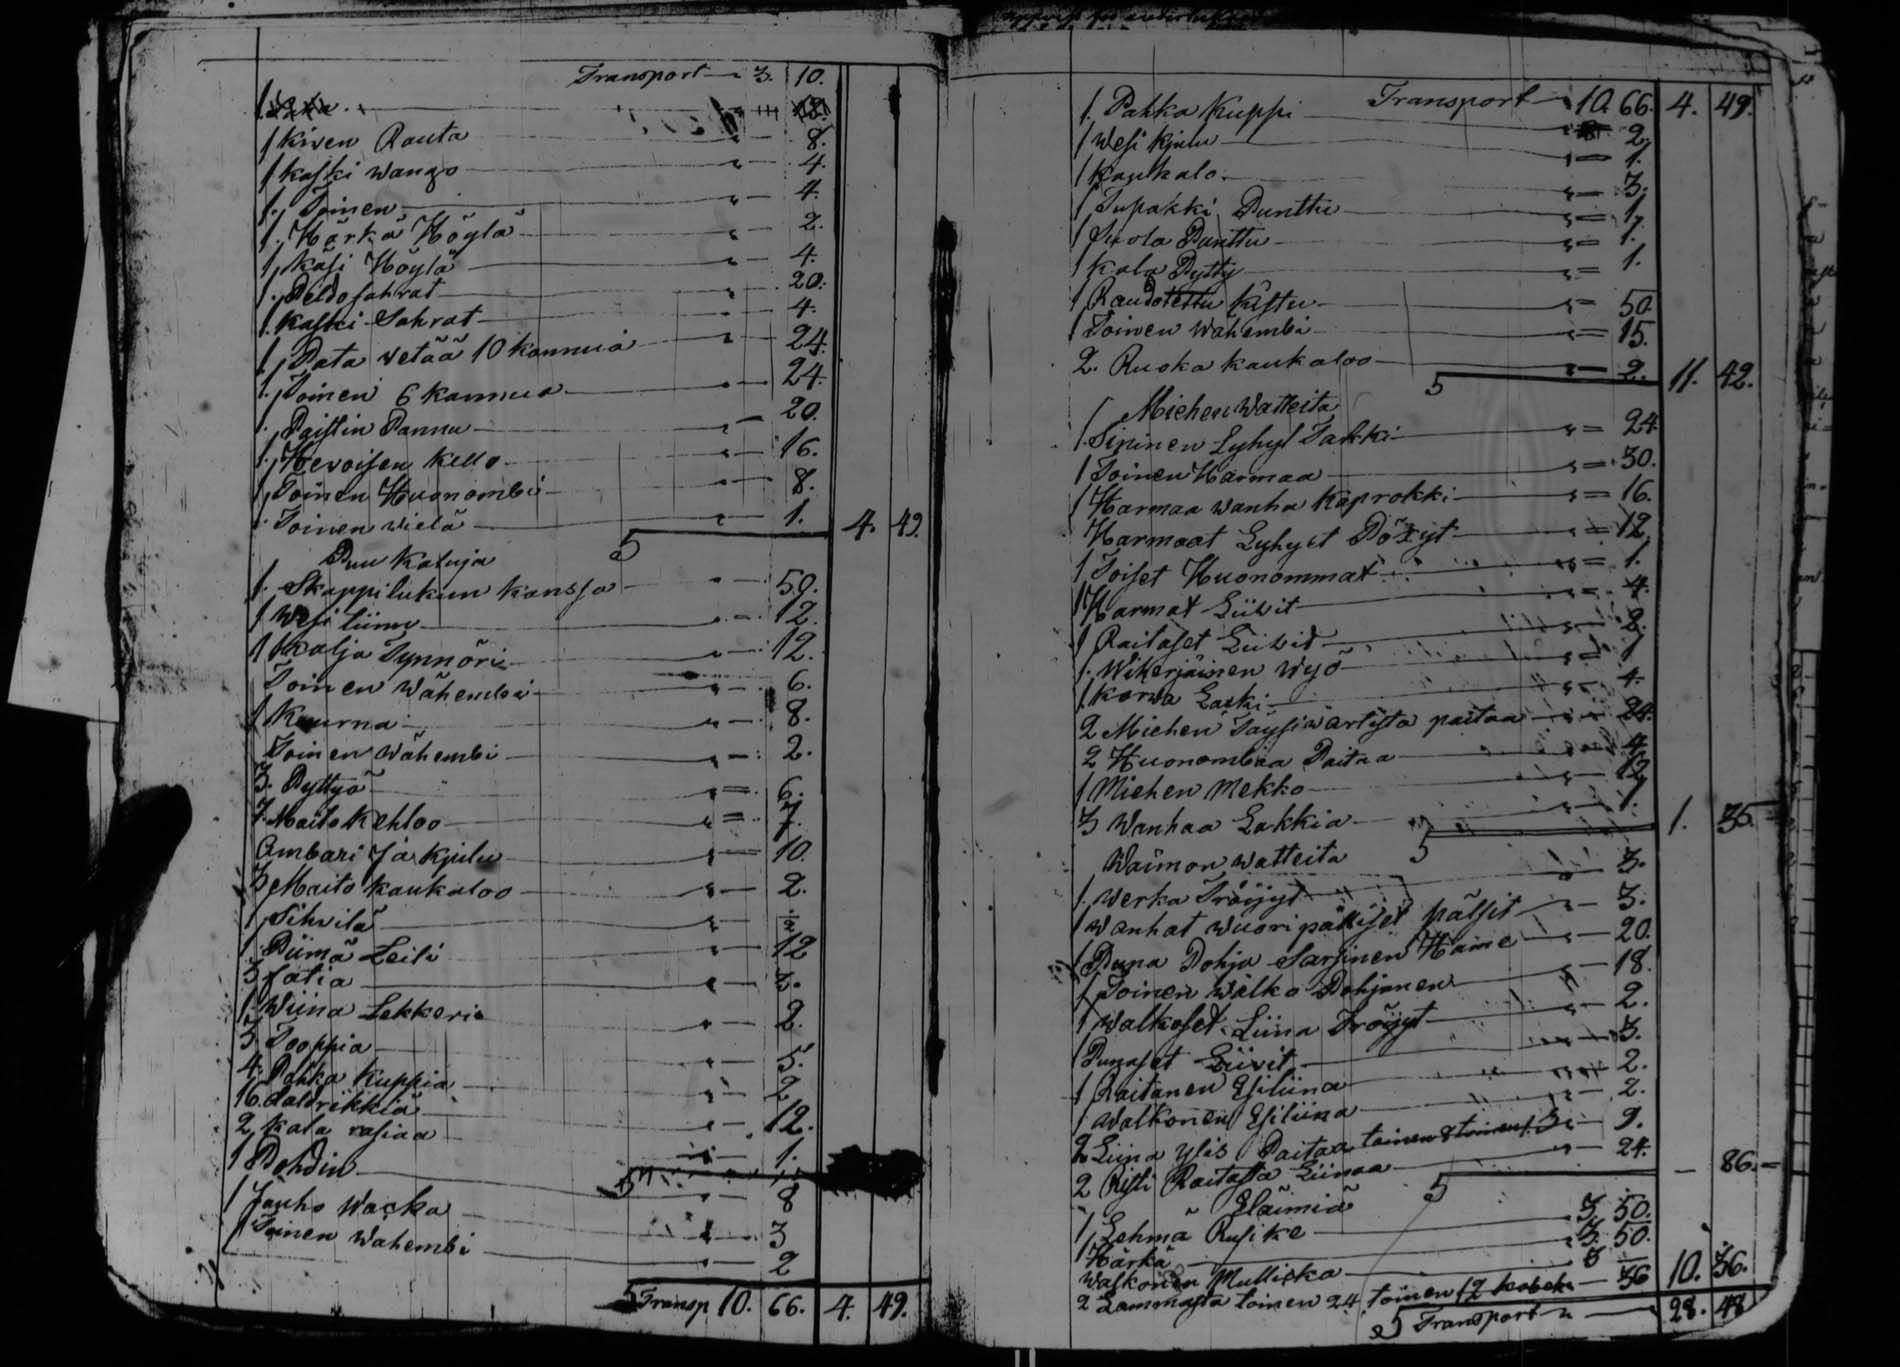 Transport 3. 10.
1 Kiven Rauta " 8.
1 Kaski Wango " 4.
1. Toinen " 4.
1. Härkä Höylä " 2.
1, Käsi Höylä " 4.
1. Peldosahrat " 20.
1. Kaski Sahrat " 4.
1. Pata vetää 10 kannua " 24.
1. Toinen 6 kannua " 24.
1. Paistin Pannu " 20.
1. Hevoisen Kello " 16.
1, Toinen Huonombi " 8.
1. Toinen wielä " 1.
S 4. 49.
Puu Kaluja
1. Skappi lukun kanssa " 50.
1 Wesi tiinu " 12.
1 Kalja Tynnöri " 12.
Toinen Wähembi " 6.
1 Kuurna " 8.
Toinen Wähembi " 2.
3. Pyttyä " 6.
7. Maito Kehloo " 7.
Ambari Ja Kjulu " 10.
3 Maito Kaukaloo " 2.
1, Sihvilä " 1/2
1. Piimä Leili " 12
3 fatia " 3.
1. Wiina Lekkeri " 2.
5 Tooppia " 5.
4. Pahka Kuppia " 2
16. Taldrikkia " 12.
2 Kala rasiaa " 1.
1 Pohdin
1 Jauho Wacka " 8
1 Toinen Wähembi " 3
2
S Transp 10. 66. 4. 49.
Transport 10. 66. 4. 49.
1. Pahka Kuppi
1 Wesi Kjulu " 2
1 Kaukalo " 1.
1 Tupakki Punttu " 3.
1 Suola Punttu " 1
1 Kala Pytty " 1.
1 Raudotettu Kistu " 50
1 Toinen Wähembi " 15.
2. Ruoka Kaukaloo " 2.
S 11. 42.
Miehen Watteita
1. Sininen Lyhyt Takki " 24
1 Toinen Harmaa " 30.
1 Harmaa Wanha Kaprokki " 16.
Harmaat Lyhyet Pöxyt " 12
1 Toiset Huonommat " 1.
1 Harmat Liivit " 4.
1 Raitaset Liivit " 8.
1. Wikerjäinen Wyö " 1
1 Korwa Lacki " 4.
2 Miehen Täysiwartista paitaa " 24.
2 Huonombaa Paitaa " 4
1 Miehen Mekko " 12
3 Wanhaa Lakkia " 1.
S 1. 35.
Waimon Watteita
1. Werka Tröijyt " 3.
1 Wanhat Wuoripäälliset Pälsit " 3.
1 Puna Pohja Sarsinen Hame " 20.
1 Toinen Walko Pohjanen " 18.
1 Walkoset Liina Tröijyt " 2.
1 Punaset Liivit " 3.
1 Raitanen Esiliina " 2.
1 Walkonen Esiliina " 2.
2 Liina Ylis Paitaa toinen 8 toinen 1 " 9.
2 Risti Raitasta Liinaa " 24.
S — 86.
Eläimiä
1, Lehmä Rusike 3. 50.
1 Härkä 3. 50.
Walkonen Mullicka 3
2 Lammasta toinen 24 toinen 12 kobek. 36 10. 36.
S Transport 28. 48